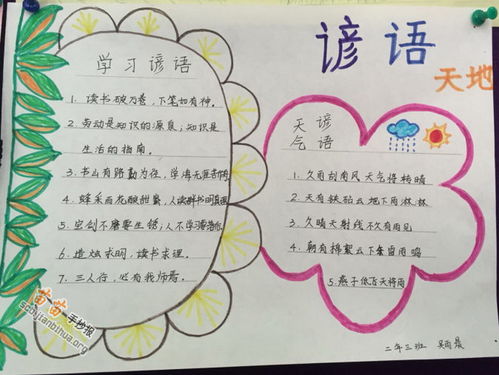 谚语
天地
学习谚语
1. 读书破万卷，下笔如有神。
2. 劳动是知识的源泉；知识是
生活的指南。
3. 书山有路勤为径，学海无涯苦作舟
4. 蜂采百花酿甜蜜，人读群书明真理
5. 宝剑不磨要生锈；人不学习要落后
6. 造烛求明，读书求理。
7. 三人行，必有我师焉。
天气
谚语
1. 久雨刮南风天气将转晴
2. 天有铁砧云地下雨淋淋
3. 久晴天射线不久有雨见
4. 朝有棉絮云下午雷雨鸣
5. 燕子低飞天将雨
二年三班
苗苗手抄报